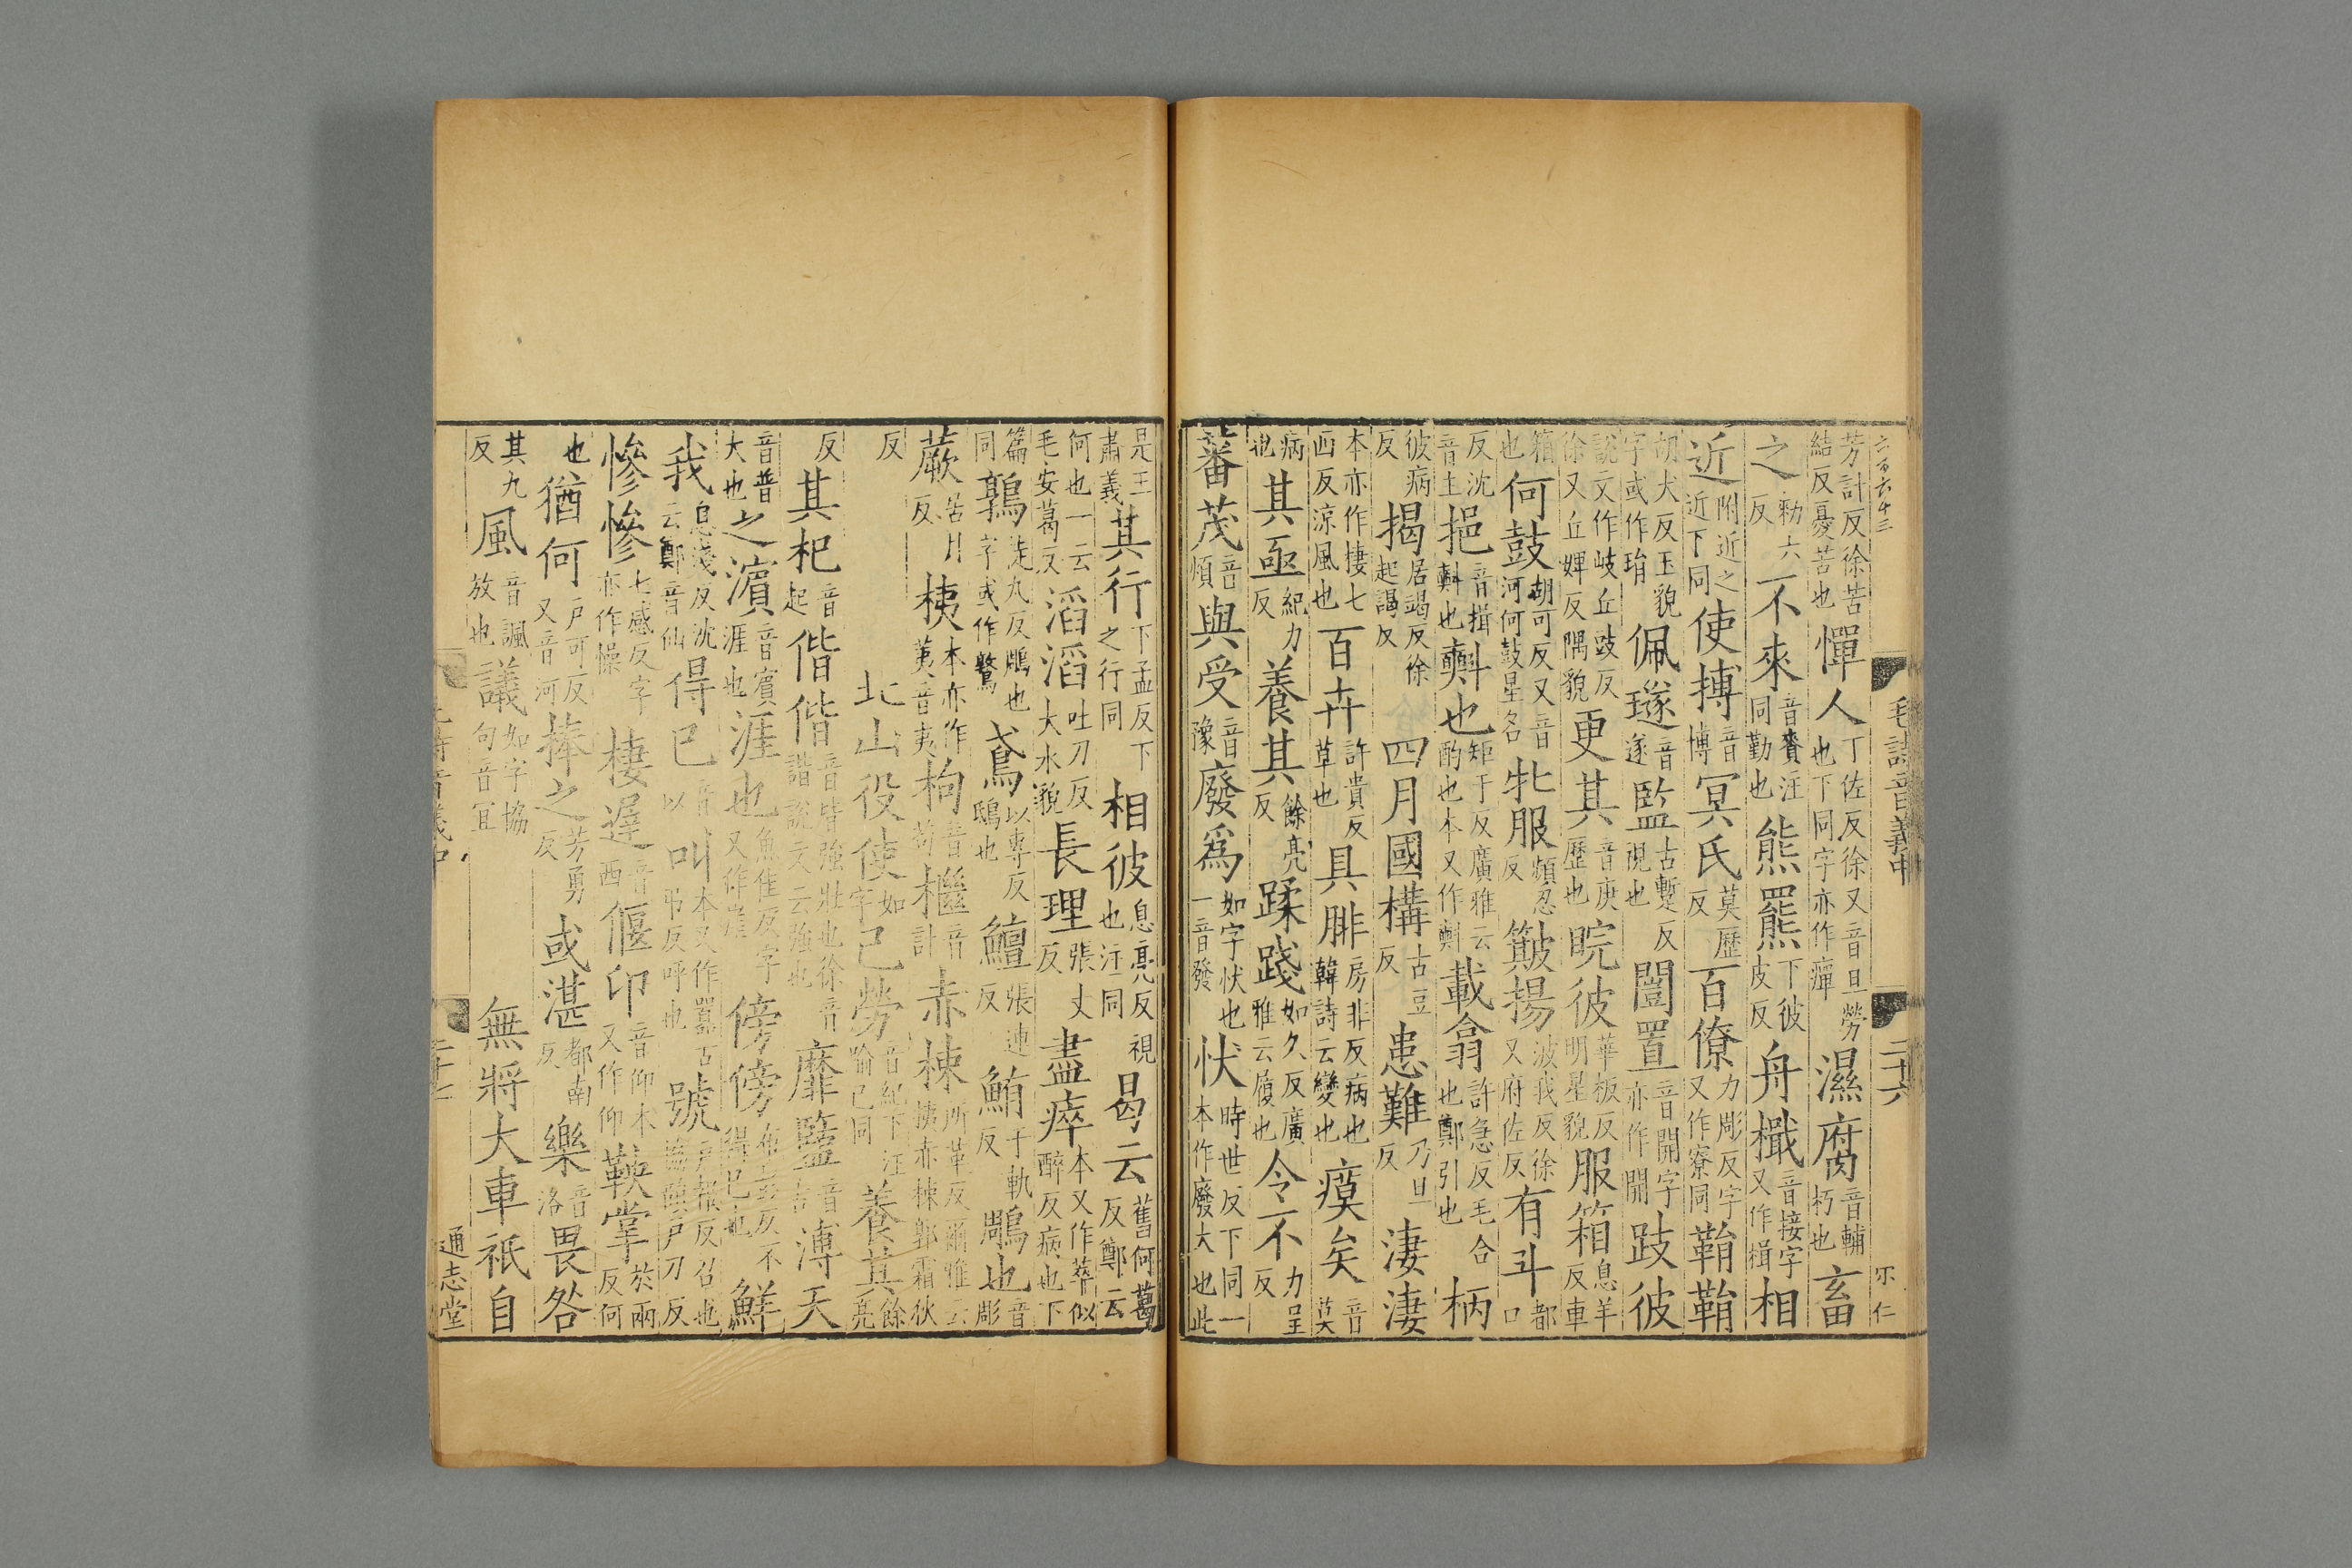 六百六十三
毛詩音義中
二十六
芳計反徐苦結反憂苦也憚人丁佐反徐又音旦勞也下同字亦作癉濕腐音輔朽也畜
之勑六反不來音賚注同勤也熊羆下彼皮反舟檝音接字又作楫相
近附近之近下同使搏音博冥氏莫歷反百僚力彫反字又作寮同鞙鞙
胡犬反玉貌字或作琄佩璲音遂監古暫反視也闓置音開字亦作開跂彼
說文作岐丘豉反徐又丘婢反隅貌更其音庚歷也睆彼華板反明星貌服箱息羊反車
箱也何鼓胡可反又音河何鼓星名牝服頻忍反簸揚波我反徐又府佐反有斗都口
反沈音主挹音揖㪺也㪺也矩于反廣雅云酌也本又作㪺載翕許急反毛合也鄭引也柄
彼病反揭居竭反徐起謁反四月國構古豆反患難乃旦反淒淒
本亦作棲七西反涼風也百卉許貴反草也具腓房非反病也韓詩云變也瘼矣音莫
病也其亟紀力反養其餘亮反蹂踐如久反廣雅云履也令不力呈反
蕃茂音煩與受音豫廢爲如字忕也一音發忕時世反下同一本作廢大也此
是王肅義其行下孟反下之行同相彼息亮反視也注同曷云舊何葛反鄭云
何也一云毛安葛反滔滔吐刀反大水貌長理張丈反盡瘁本又作萃似醉反病也下
篇同鶉徒丸反鵰也字或作鷻鳶以專反鴟也鱣張連反鮪于軌反鵰也音彫
蕨居月反桋本亦作荑音夷枸音苟檵音計赤楝所革反爾雅云桋赤楝郭霜狄
反北山役使如字已勞音紀下注喻已同養其餘亮
反其杞音起偕偕音皆強壯也徐音諧說文云強也靡盬音古溥天
音普大也之濱音賓涯也涯也魚佳反字又作崖傍傍布彭反不得已也鮮
我息淺反沈云鄭音仙得已音以叫本又作嚻古弔反呼也號戶報反召也協韻戶刀反
慘慘七感反字亦作懆棲遲音西偃仰音仰本又作仰鞅掌於兩反何
也猶何戶可反又音河捧之芳勇反或湛都南反樂音洛畏咎
其九反風音諷放也議如字協句音宜無將大車祇自
通志堂